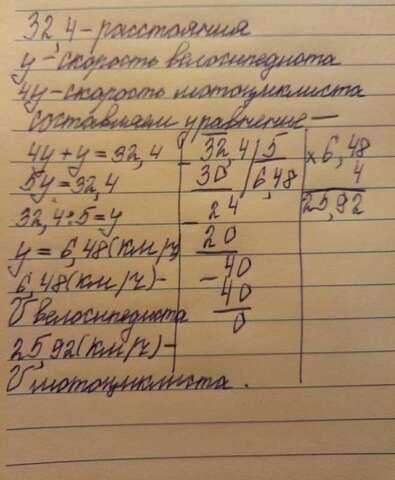 32,4-расстояния
y-скорость велосипедиота
4y-скорость мотоциклиста
составляем уравнение-
4y+y=32,4
5y=32,4
32,4:5=y
y=6,48(км/ч)
6,48(км/ч)-
V велосипедиота
25,92(км/ч)-
V мотоциклиста.
- 32,4/5
30/6,48
- 24
20
- 40
40
0
×6,48
4
25,92